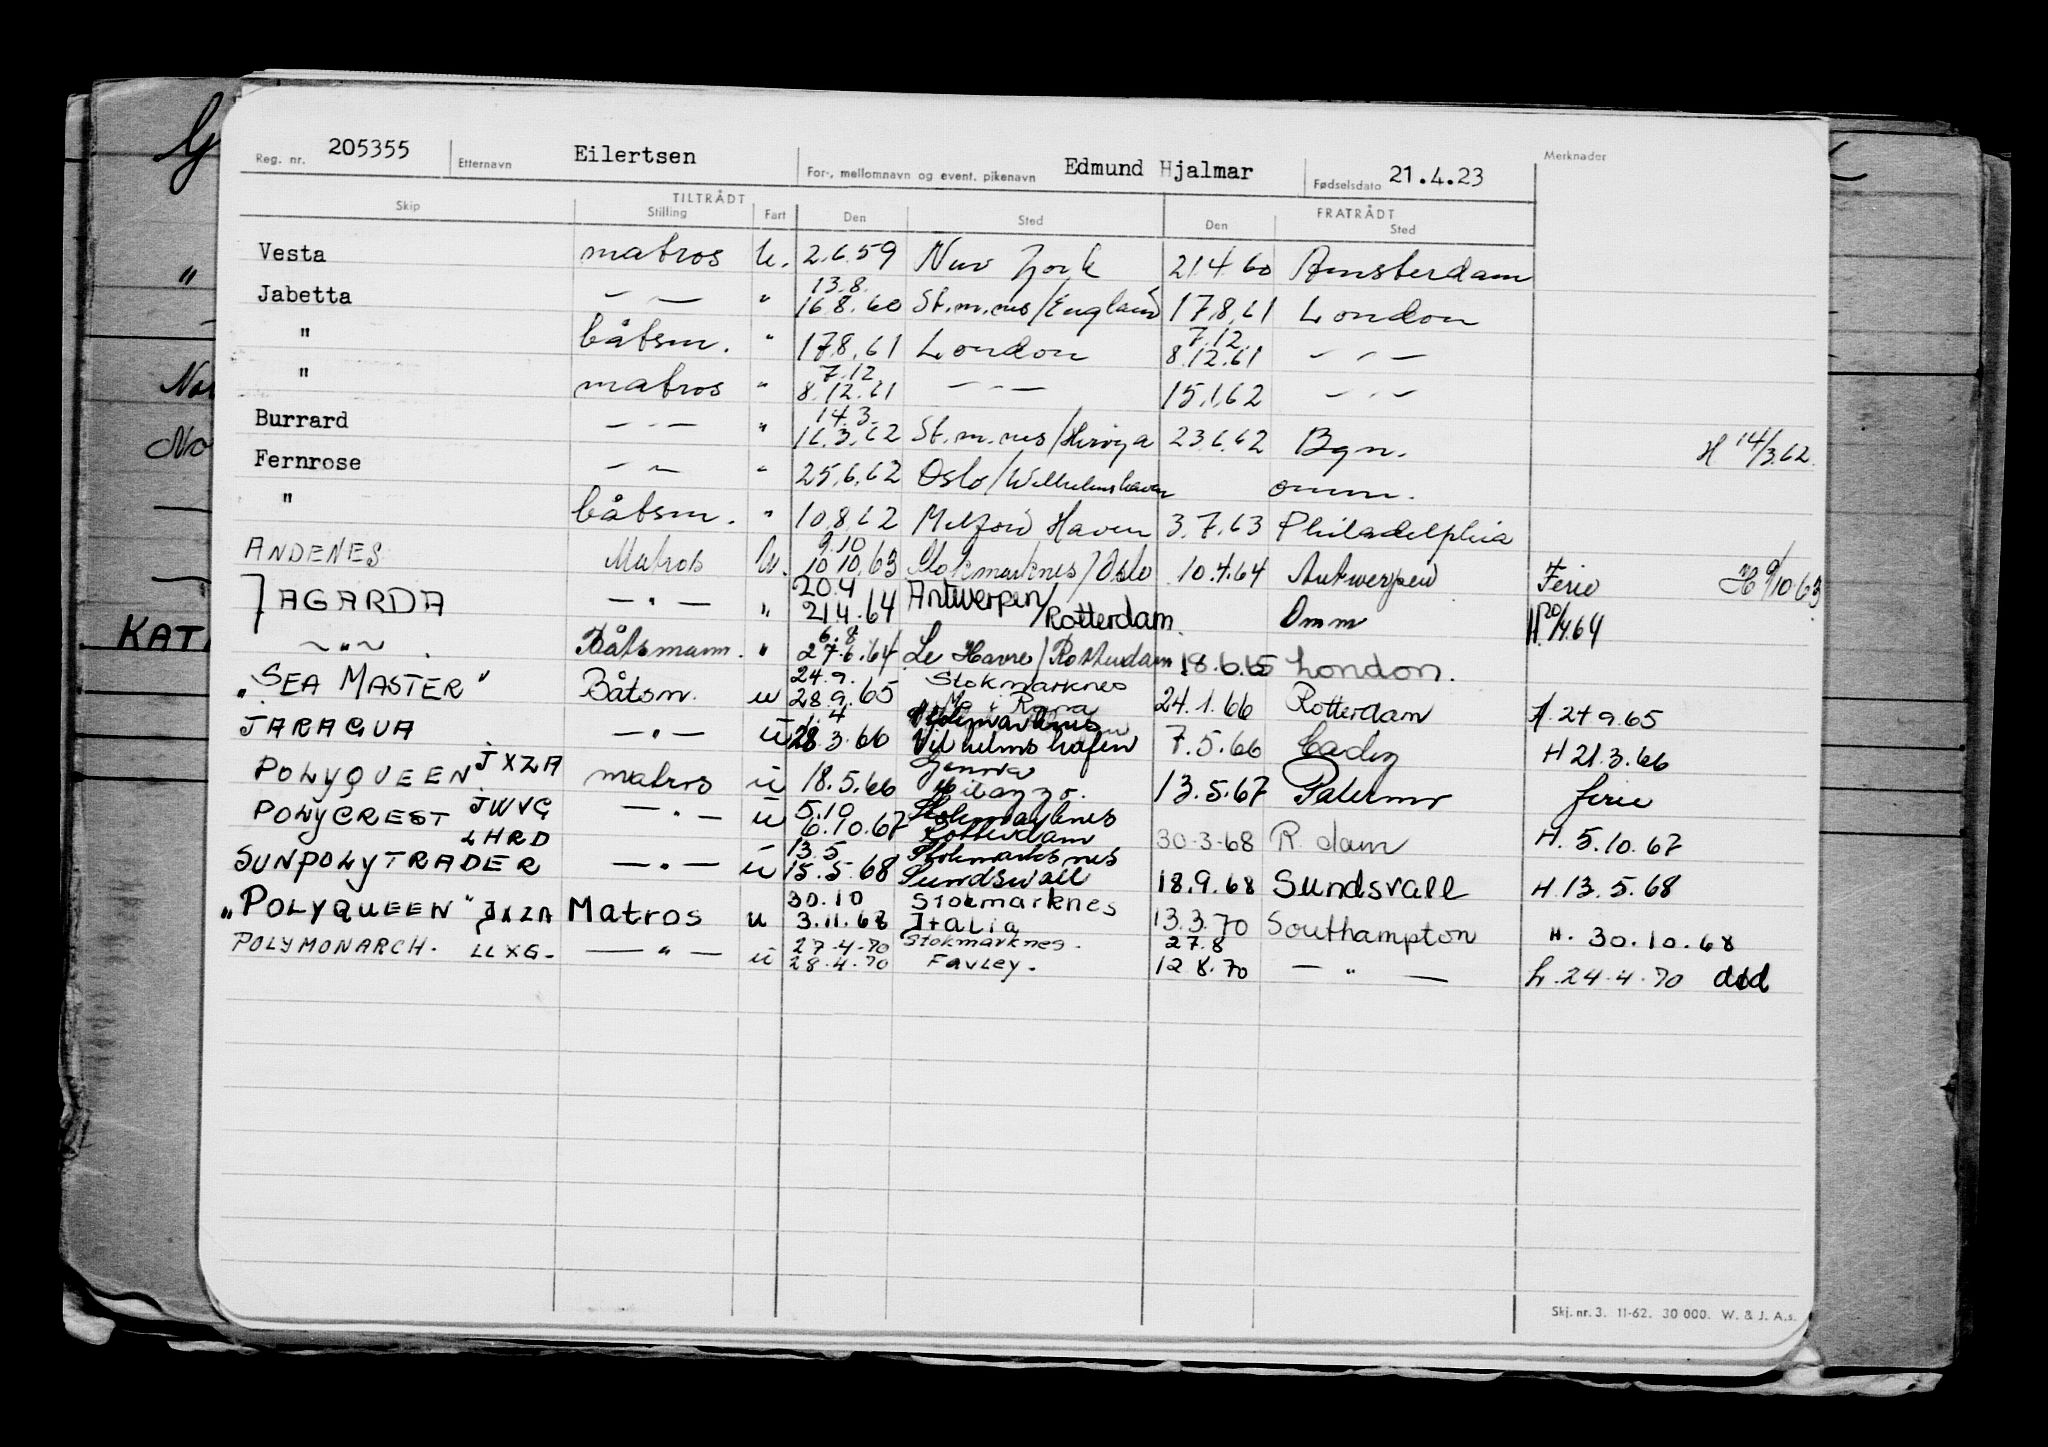 Reg. nr. 205355 Etternavn Eilertsen For-, mellomnavn og event. pikenavn Edmund Hjalmar Fødselsdato 21.4.23 Merknader
TILTRÅDT FRATRÅDT
Skip Stilling Fart Den Sted Den Sted
Vesta matros u. 2.6.59 New York 21.4.60 Amsterdam
13.8.
Jabetta — — " 16.8.60 St.m.nes/England 17.8.61 London
7.12.
" båtsm. " 17.8.61 London 8.12.61 — " —
7.12
" matros " 8.12.61 — — 15.1.62 — " —
14.3.
Burrard — " — " 16.3.62 St.m.nes/ 23.6.62 Bgn. H 14/3.62.
Fernrose — — " 25.6.62 Oslo/Wilhelmshaven omm.
" båtsm. " 10.8.62 Milford Haven 3.7.63 Philadelphia
9.10
ANDENES Matros u. 10.10.63 Stokmarknes/Oslo 10.4.64 Antwerpen Ferie H 9/10.63
20.4
JAGARDA — " — " 21.4.64 Antwerpen/Rotterdam. Omm H 20/4.64
6.8
— " — Båtsmann. " 27.6.64 Le Havre/Rotterdam 18.6.65 London.
24.9. Stokmarknes
"SEA MASTER" Båtsm. u 28.9.65 Mo i Rana 24.1.66 Rotterdam H. 24.9.65
1.4 Stokmarknes
JARAGUA — " — u 28.3.66 Vilhelmshafen 7.5.66 Cadiz H 21.3.66
Genova
POLYQUEEN JXZA matros u 18.5.66 Milazzo. 13.5.67 Palermo ferie
5.10 Stokmarknes
POLYCREST JWVG — " — u 6.10.67 Rotterdam 30.3.68 R.dam H. 5.10.67
LHRD 13.5 Stokmarknes
SUNPOLYTRADER — " — u 15.5.68 Sundsvall 18.9.68 Sundsvall H. 13.5.68
30.10 Stokmarknes
"POLYQUEEN" JXZA Matros u 3.11.68 Italia 13.3.70 Southampton H. 30.10.68
27.4.70 Stokmarknes. 27.8
POLYMONARCH. LLXG. — " — u 28.4.70 Favley. 12.8.70 — " — h. 24.4.70 dtd
KAT
Skj. nr. 3. 11-62. 30 000. W. & J. A.s.